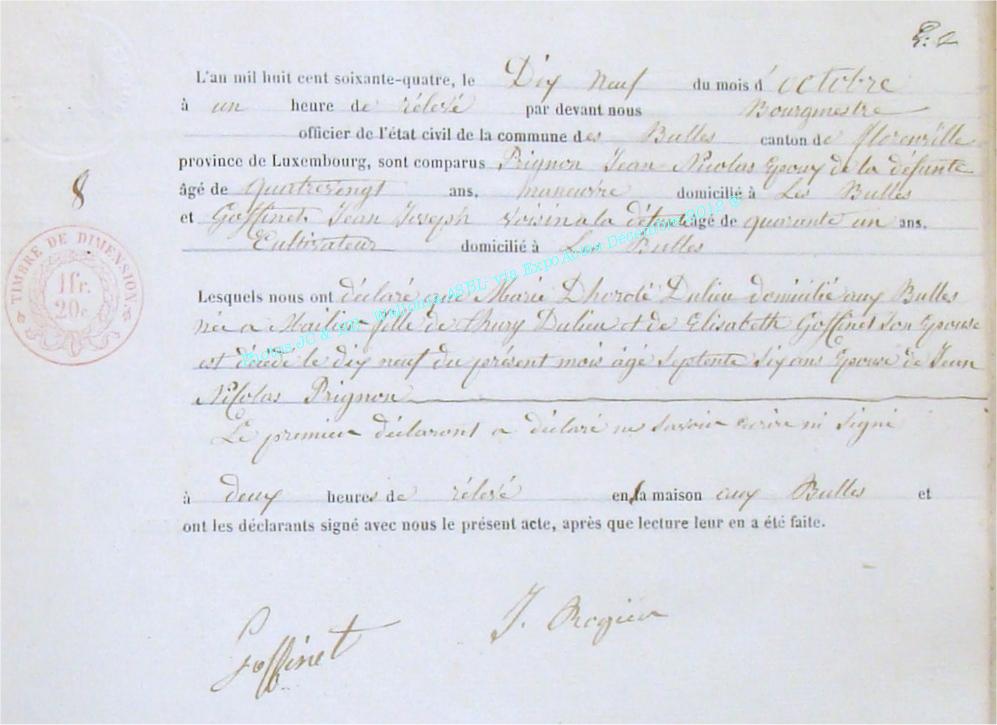 L'an mil huit cent soixante-quatre, le Dix neuf du mois d'octobre
à un heure de rélevé par devant nous Bourgmestre
officier de l'état civil de la commune des Bulles canton de florenville
province de Luxembourg, sont comparus Prignon Jean Nicolas Epoux de la défunte
âgé de Quatrevingt ans. maneuvre domicilié à Les Bulles
et Goffinet Jean Joseph voisin a la défunte âgé de quarante un ans.
Cultivateur domicilié à Les Bulles
8
TIMBRE DE DIMENSION
1fr.
20c
Lesquels nous ont déclaré que Marie Dulieu domicilié aux Bulles
née a fille de Dulieu et de Elisabeth Goffinet son Epouse
est décédé le dix neuf du present mois âgé septente six ans Epouse de Jean
Nicolas Prignon
Le premier déclarant a déclaré ne savoir écrire ni signé
à deux heures de rélevé en la maison aux Bulles et
ont les déclarants signé avec nous le présent acte, après que lecture leur en a été faite.
Goffinet J.
via ExpoActes Décembre 2012 ©